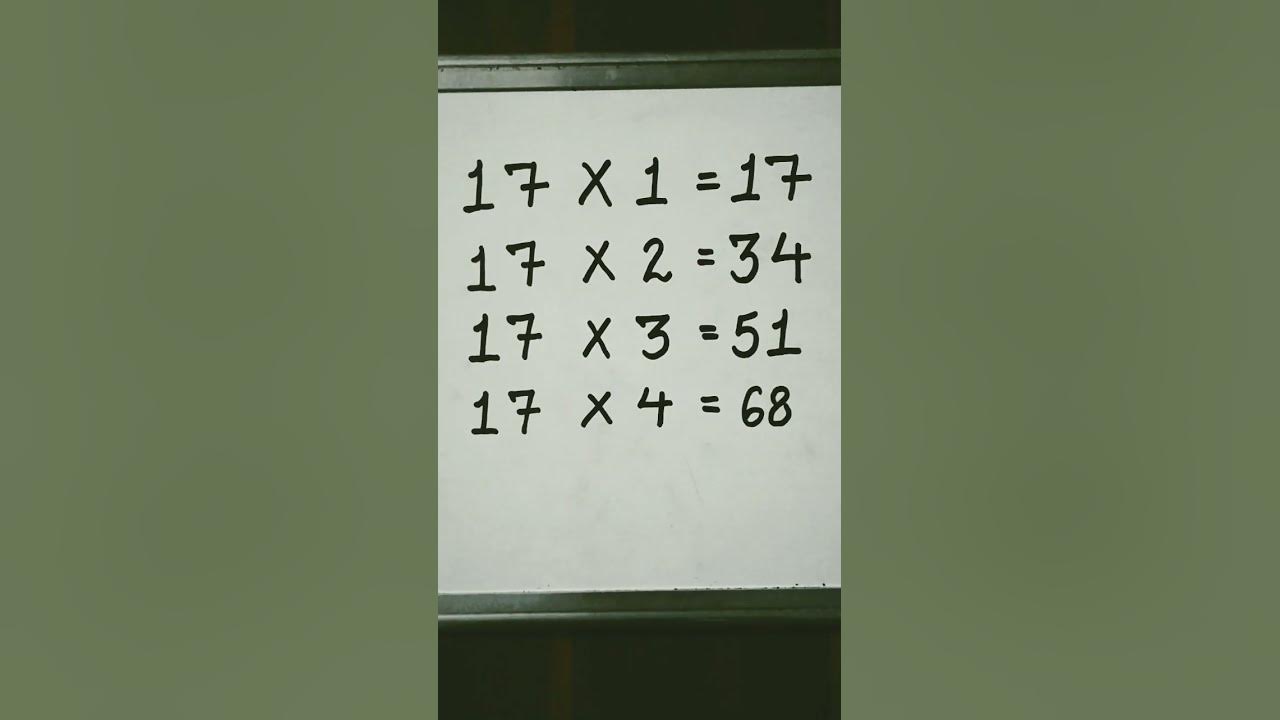 17 X 1 = 17
17 X 2 = 34
17 X 3 = 51
17 X 4 = 68